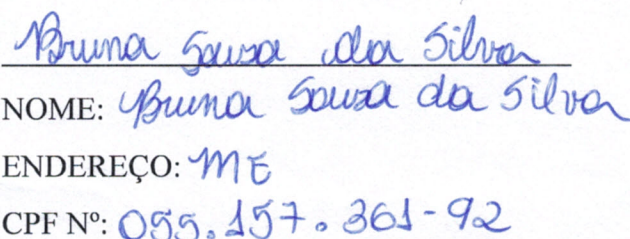 Bruna Souza da Silva
NOME: Bruna Souza da Silva
ENDEREÇO: ME
CPF Nº: 055.157.361-92